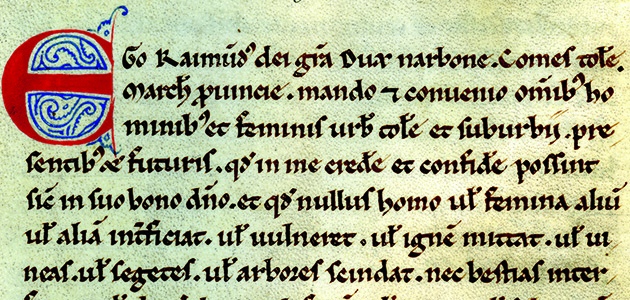 EGo Raimūdꝰ dei gr̄a Dux narbone. Comes tole̅.
March̅ ꝓuincie. mando ⁊ conuenio om̄ibꝰ ho
minibꝰ et feminis urb̅ tole̅ et suburbij. pre
sentibꝰ ⁊ futuris. qd̓ in me crede̅ et confide̅ possint
sic̅ in suo bono dn̄o. et qd̓ nullus homo ul̅ femina aliū
ul̅ aliā int̅ficiat. ul̅ uulneret. ul̅ igne̅ mittat. ul̅ ui
neas. ul̅ segetes. ul̅ arbores scindat. nec bestias inter